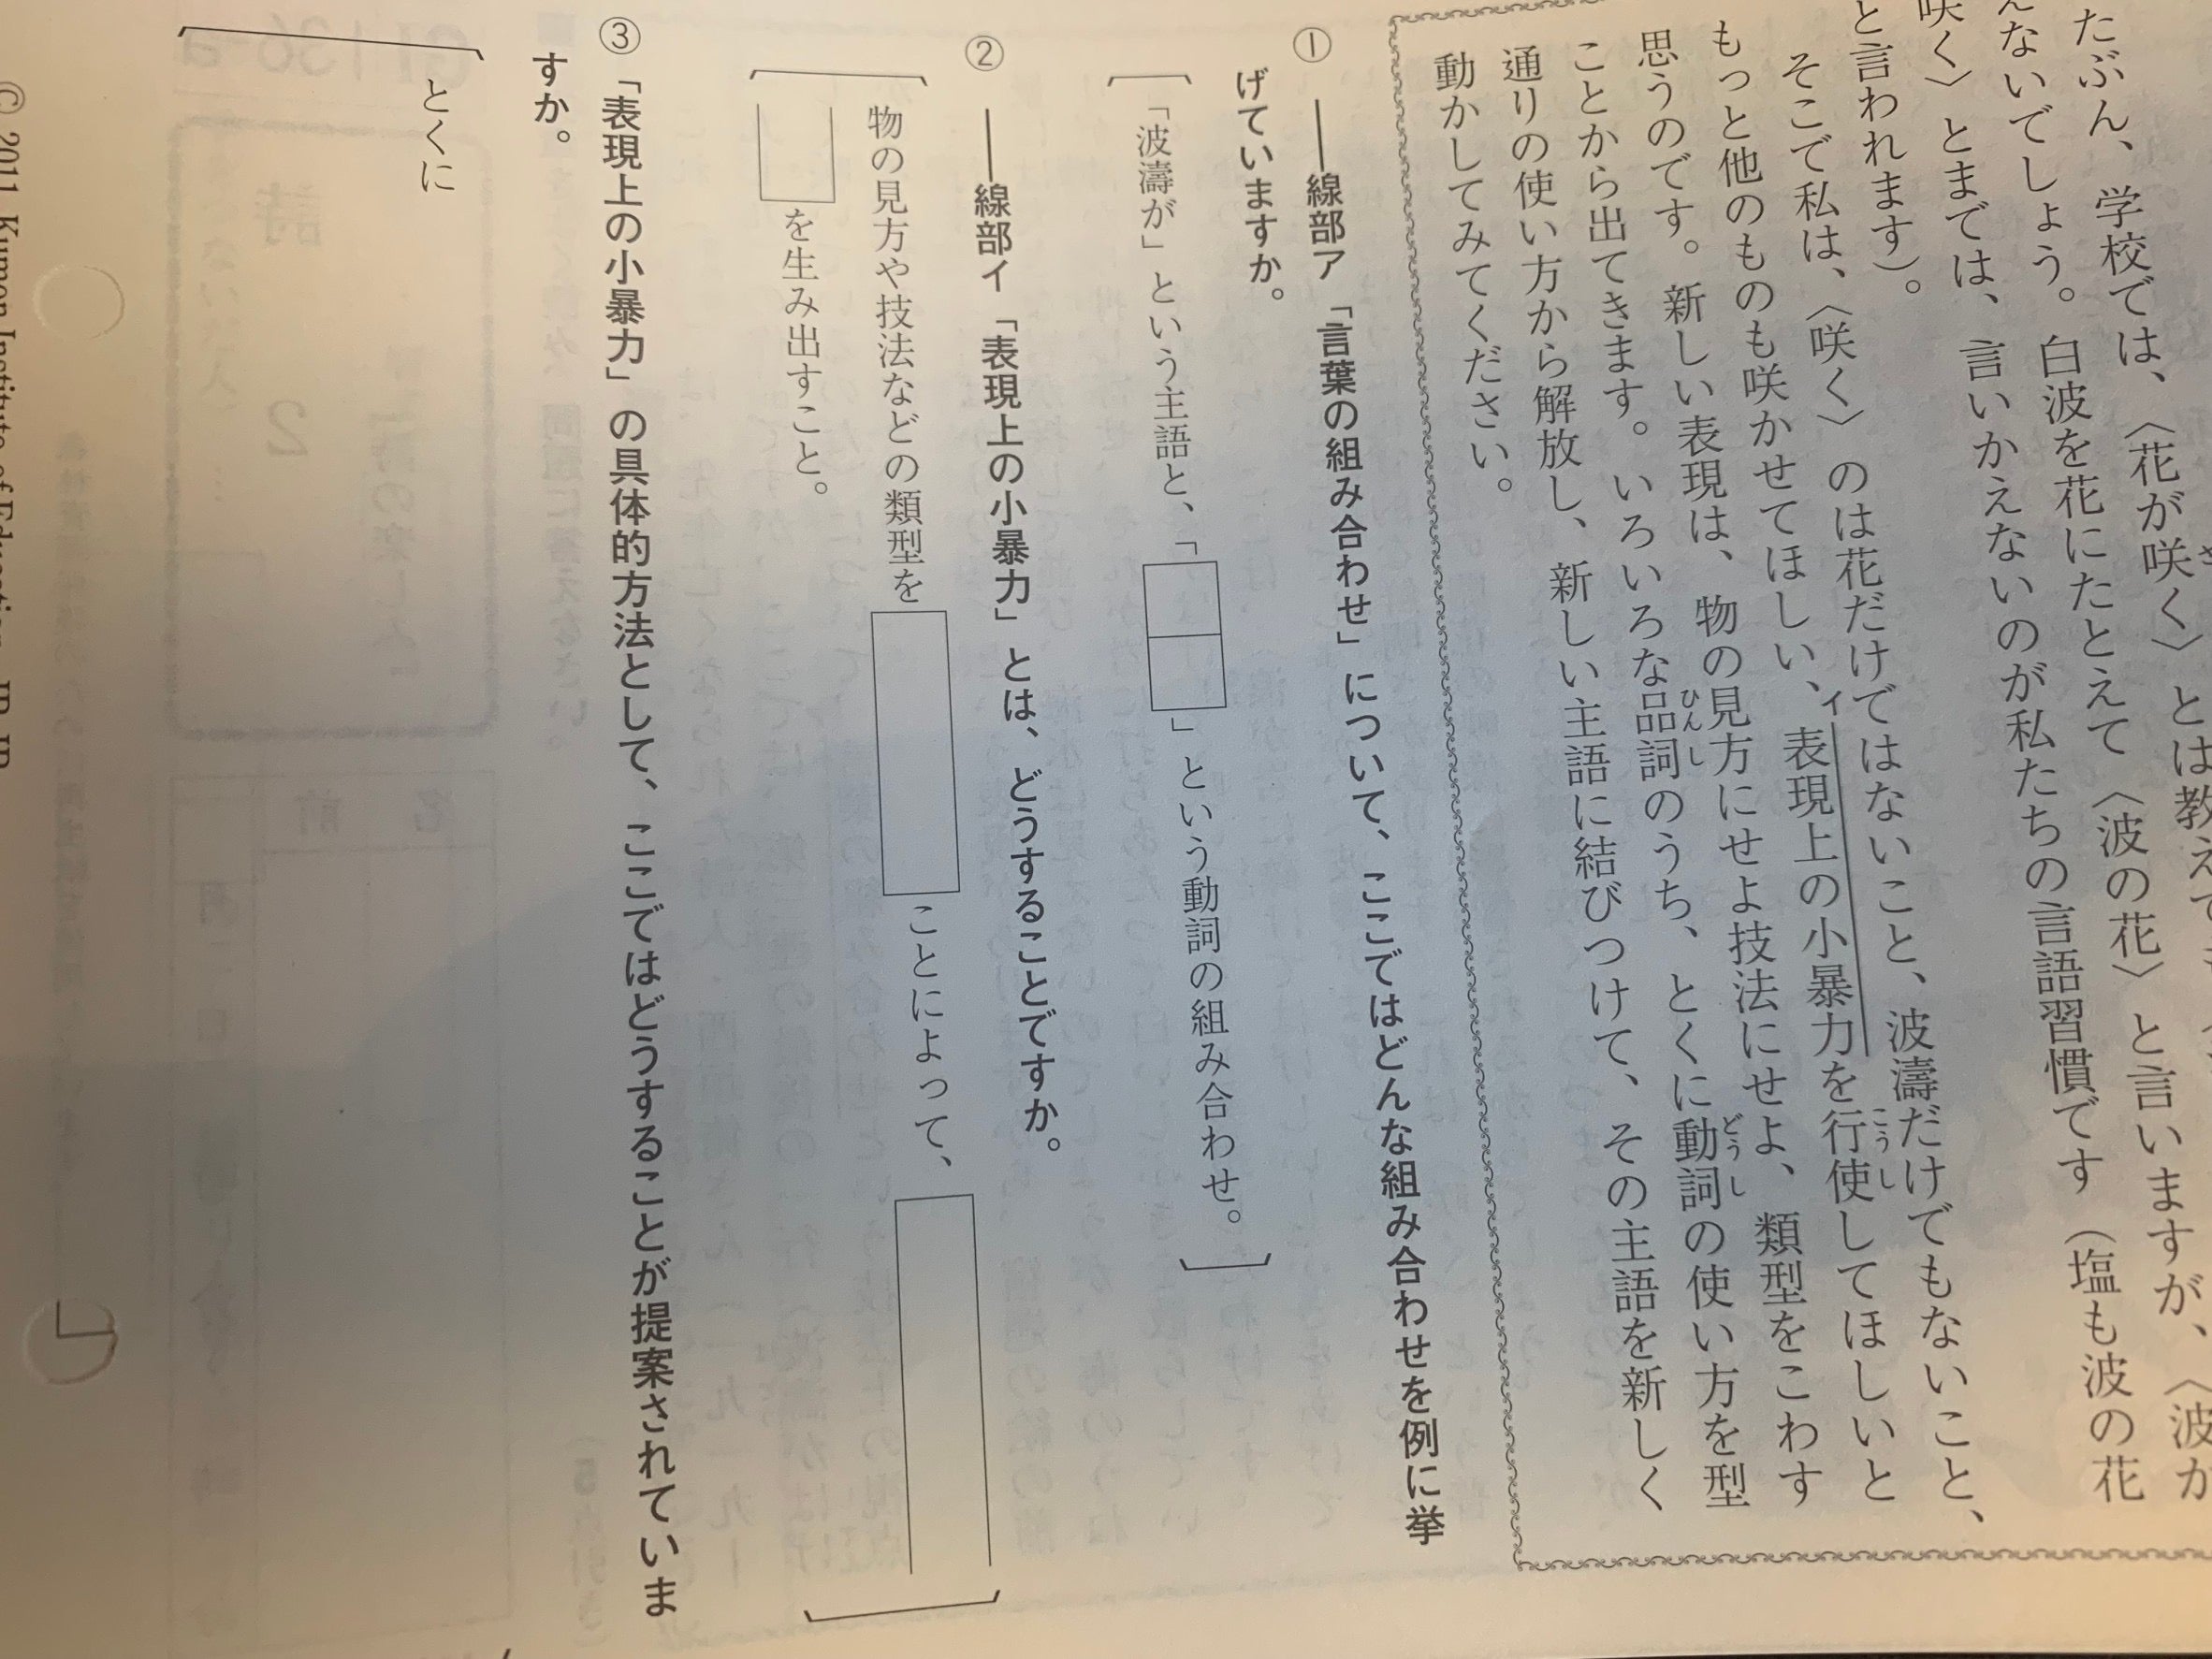 たぶん、学校では、〈花が咲く〉とは教えて
えないでしょう。白波を花にたとえて〈波の花〉と言いますが、〈波が
咲く〉とまでは、言いかえないのが私たちの言語習慣です（塩も波の花
と言われます）。
そこで私は、〈咲く〉のは花だけではないこと、波濤だけでもないこと、
もっと他のものも咲かせてほしい、イ表現上の小暴力を行使してほしいと
思うのです。新しい表現は、物の見方にせよ技法にせよ、類型をこわす
ことから出てきます。いろいろな品詞のうち、とくに動詞の使い方を型
通りの使い方から解放し、新しい主語に結びつけて、その主語を新しく
動かしてみてください。
① ――線部ア「言葉の組み合わせ」について、ここではどんな組み合わせを例に挙
げていますか。
「波濤が」という主語と、「　　」という動詞の組み合わせ。
② ――線部イ「表現上の小暴力」とは、どうすることですか。
物の見方や技法などの類型を　　ことによって、
を生み出すこと。
③ 「表現上の小暴力」の具体的方法として、ここではどうすることが提案されていま
すか。
とくに
© 2011 Kumon Institute of Education JP JP